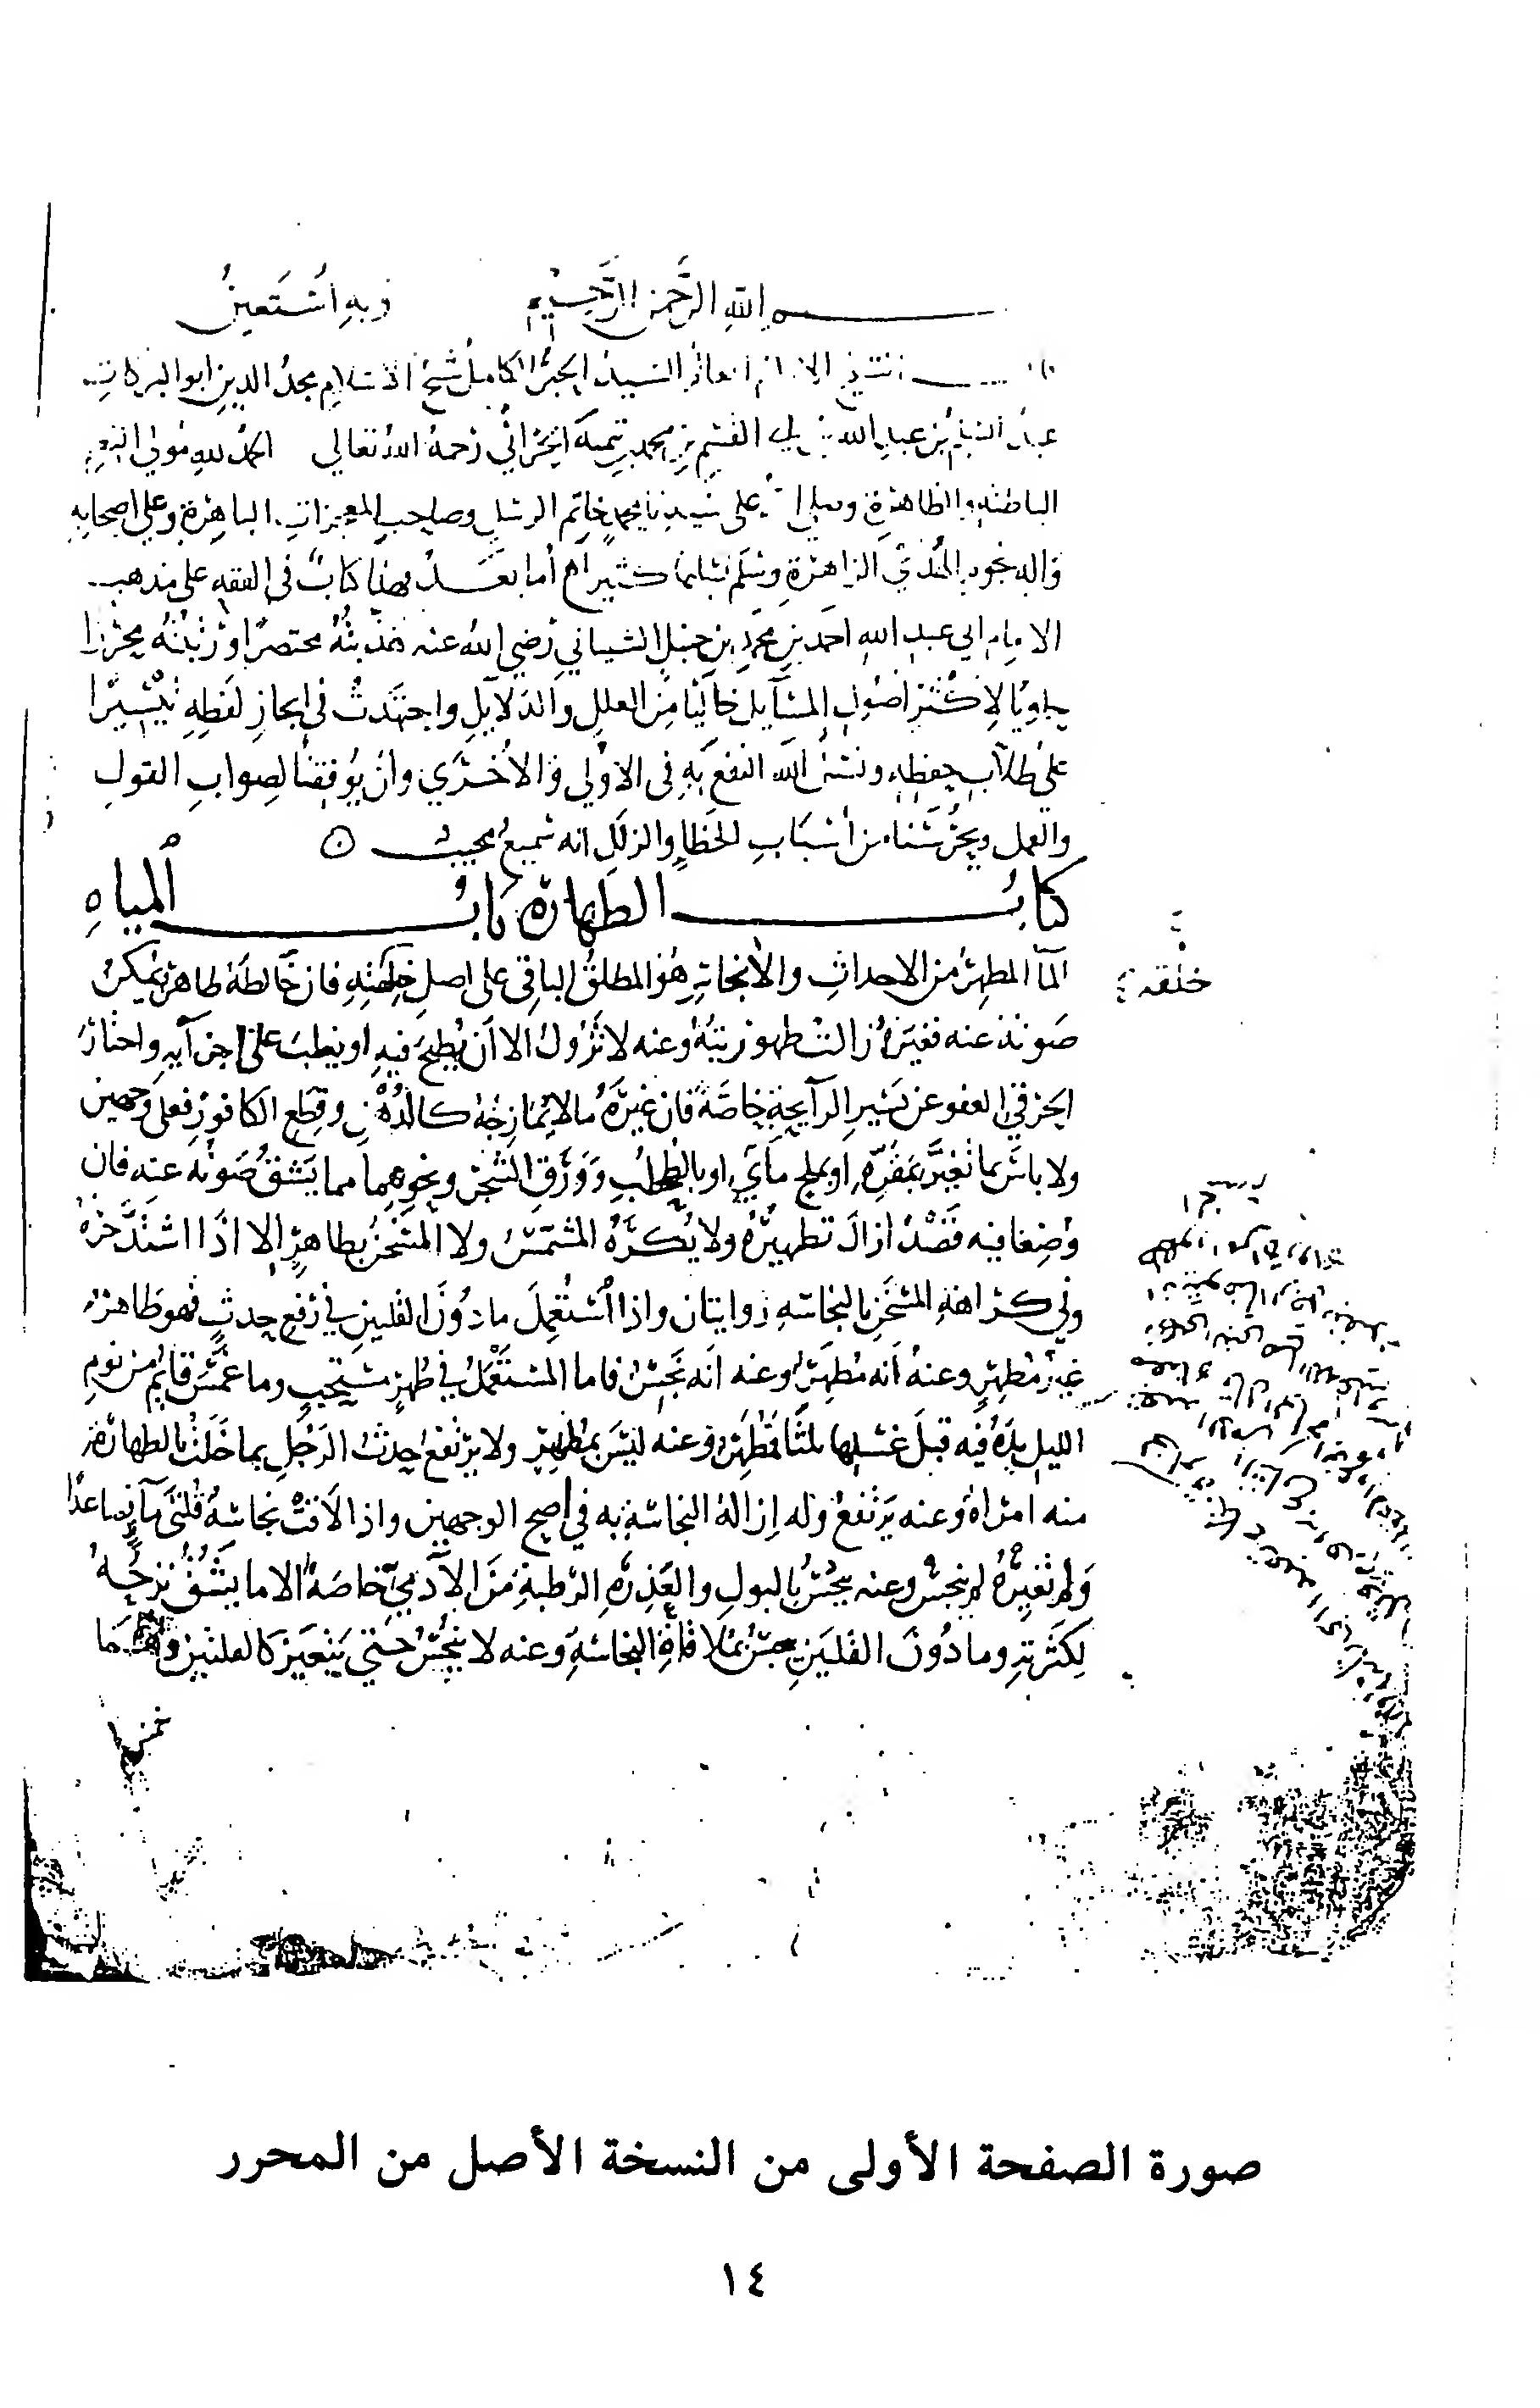 بسم الله الرحمن الرحيم وبه استعين
السيد الحبر الكامل شيخ الاسلام مجد الدين ابو البركات
عبد السلام بن عبد الله بن ابي القسم بن محمد بن تيمية الحراني رحمه الله تعالي الحمد لله مولي النعم
الباطنه والظاهرة وصلى الله على سيدنا محمد خاتم الرسل وصاحب المعجزات الباهرة وعلي اصحابه
واله نجوم الهدي الزاهرة وسلم تسليما كثيرا اما بعد فهذا كتاب في الفقه على مذهب
الامام ابي عبد الله احمد بن محمد بن حنبل الشيباني رضي الله عنه هذبته مختصرا ورتبته محررا
حاويا لاكثر اصول المسآيل خاليا من العلل والدلايل واجتهدت في ايجاز لفظه تيسيرا
على طلاب حفظه ونسئل الله النفع به في الاولي والاخري وان يوفقنا لصواب القول
والعمل ويحرسنا من اسباب الخطإ والزلل انه سميع مجيب
كتاب الطهارة باب المياه
المآ المطهر من الاحداث والانجاس هو المطلق الباقي على اصل خلقته فان خالطه طاهر يمكن
صونه عنه فغيره زالت طهوريته وعنه لا تزول الا ان يطبخ فيه او يغلب على اجزآيه واختار
الخرقي العفو عن يسير الرآيحة خاصة فان غيره ما لا يمازجه كالدهن وقطع الكافور فعلى وجهين
ولا باس بما تغير بمقره او بملح مآي او بالطحلب وورق الشجر ونحوهما مما يشق صونه عنه فان
وضعا فيه قصدا ازال تطهيره ولا يكره المشمس ولا المسخن بطاهر الا اذا اشتد حره
وفي كراهة المسخن بالنجاسه روايتان واذا استعمل ما دون القلتين في رفع حدث فهو طاهر
غير مطهر وعنه انه مطهر وعنه انه نجس فاما المستعمل في طهر مستحب وما غمس قائم من نوم
الليل يده فيه قبل غسلها ثلثا فمطهر وعنه ليس بمطهر ولا يرتفع حدث الرجل بما خلت بالطهارة
منه امراة وعنه يرتفع وله ازالة النجاسة به في اصح الوجهين واذا لاقت نجاسة قلتى مآ فصاعدا
ولم تغيره لم ينجس وعنه ينجس بالبول والعذرة الرطبة من الآدمي خاصة الا ما يشق نزحه
لكثرته وما دون القلتين ينجس بملاقاة النجاسة وعنه لا ينجس حتي يتغير كالقلتين وهما
خلقه
صورة الصفحة الأولى من النسخة الأصل من المحرر
١٤